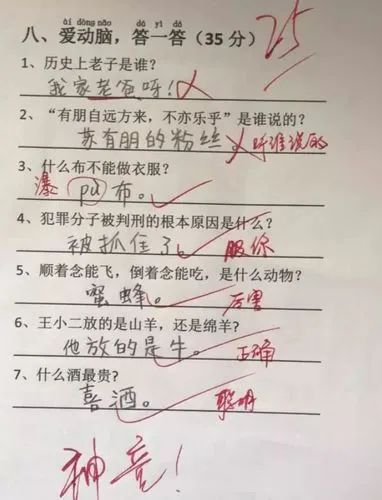 ài dòng nǎo dá yì dá
八、爱动脑，答一答（35 分） 25
1、历史上老子是谁？
我家老爸呀！
2、“有朋自远方来，不亦乐乎”是谁说的？
苏有朋的粉丝 听谁说的
3、什么布不能做衣服？
瀑 pù 布。
4、犯罪分子被判刑的根本原因是什么？
被抓住了。 服你
5、顺着念能飞，倒着念能吃，是什么动物？
蜜蜂。 厉害
6、王小二放的是山羊，还是绵羊？
他放的是牛。 正确
7、什么酒最贵？
喜酒。 聪明
神童！